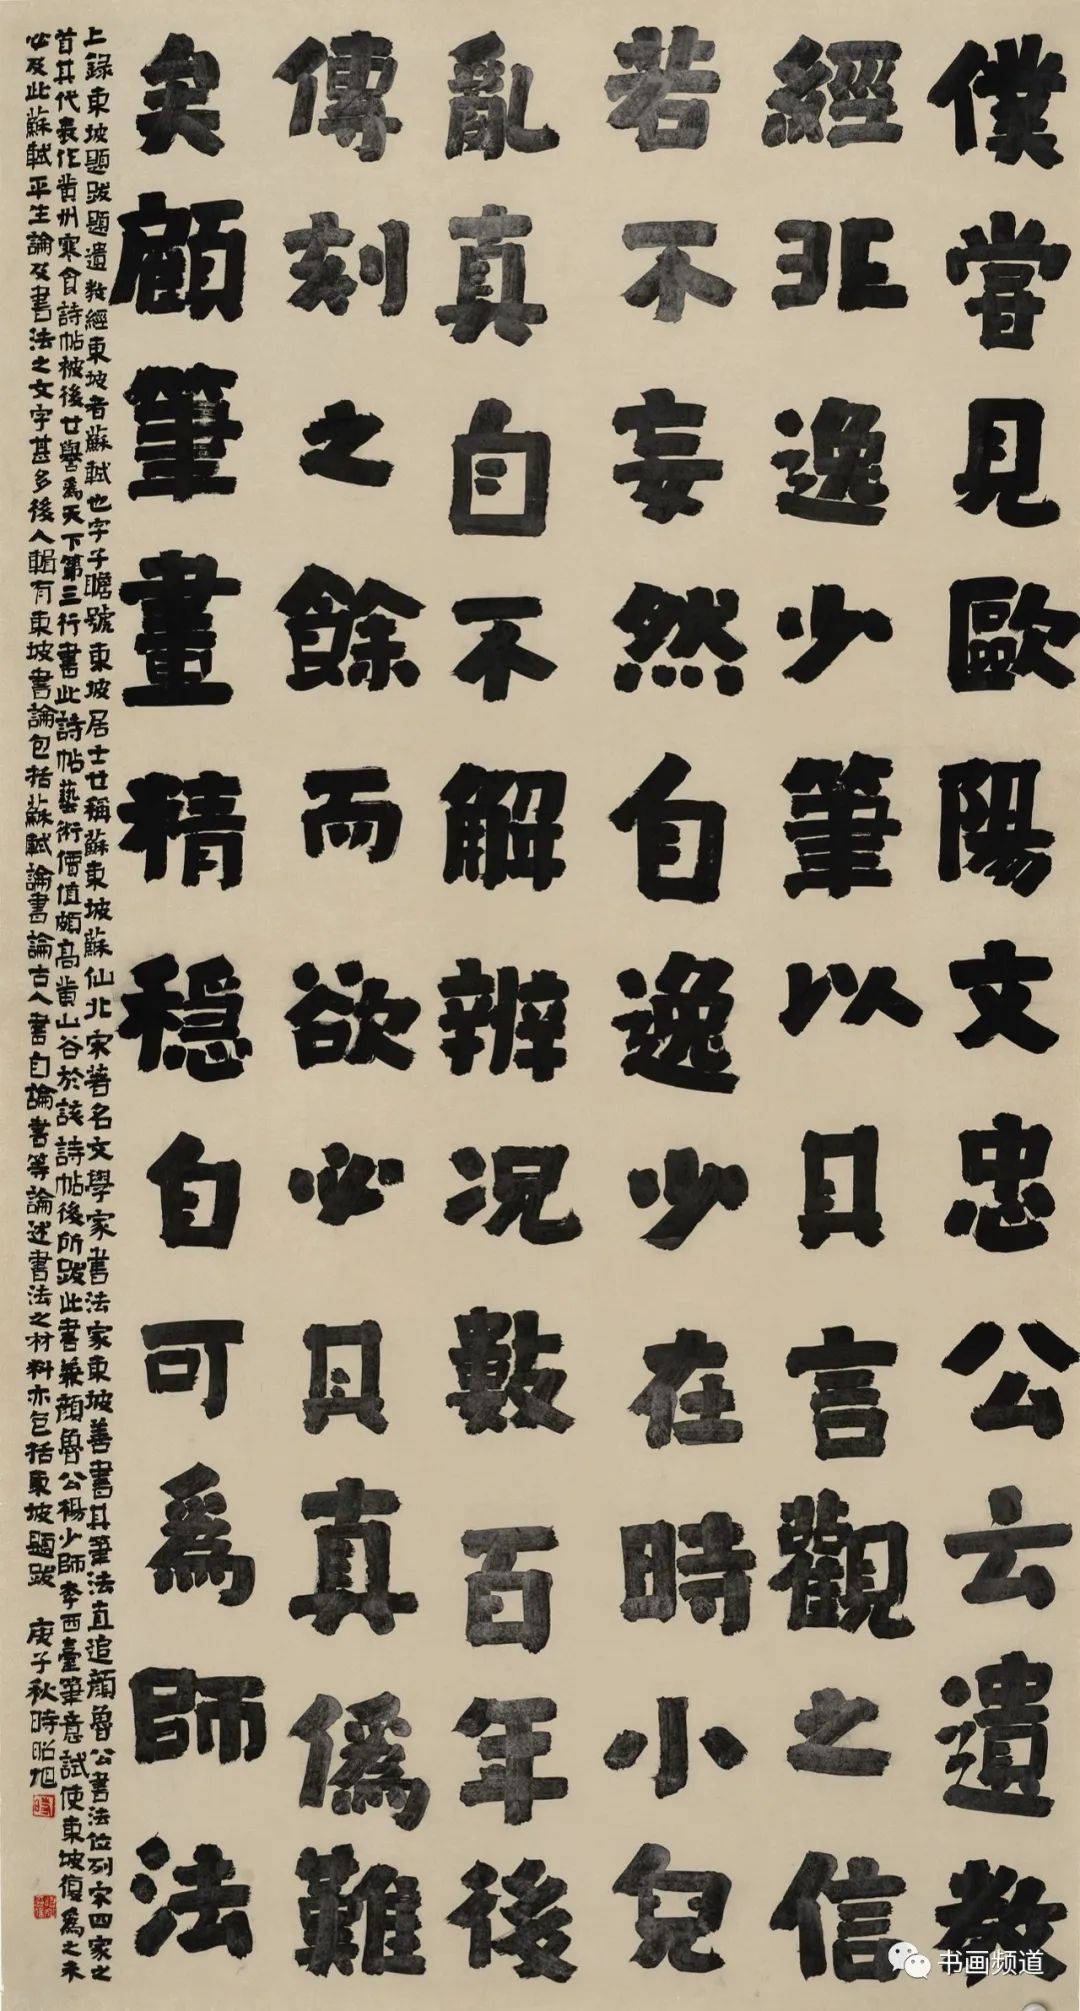 僕嘗見歐陽文忠公云遺教
經非逸少筆以其言觀之信
若不妄然自逸少在時小兒
亂真自不解辨況數百年後
傳刻之餘而欲必其真偽難
矣顧筆畫精穩自可為師法
上錄東坡題跋題遺教經東坡者蘇軾也字子瞻號東坡居士世稱蘇東坡蘇仙北宋著名文學家書法家東坡善書其筆法直追顏魯公書法位列宋四家之
首其代表作黃州寒食詩帖被後世譽為天下第三行書此詩帖藝術價值頗高黃山谷於該詩帖後所跋此書兼顏魯公楊少師李西臺筆意試使東坡復為之未
必及此蘇軾平生論及書法之文字甚多後人輯有東坡書論包括蘇軾論書論古人書自論書等論述書法之材料亦包括東坡題跋 庚子秋時昭旭
书画频道